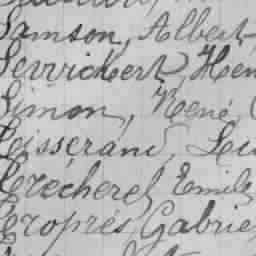 Samson, Albert
Serrickert, Hen
Simon, René
Teisserand, Lou
Trecherel, Emile
Troprés, Gabrie